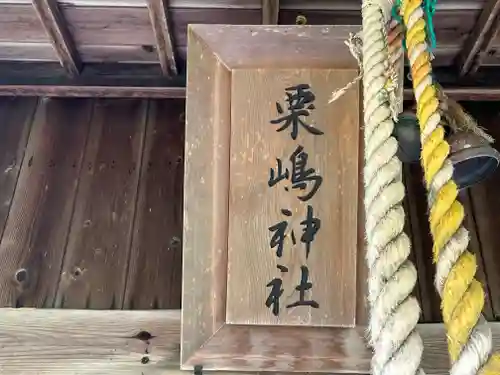 粟嶋神社